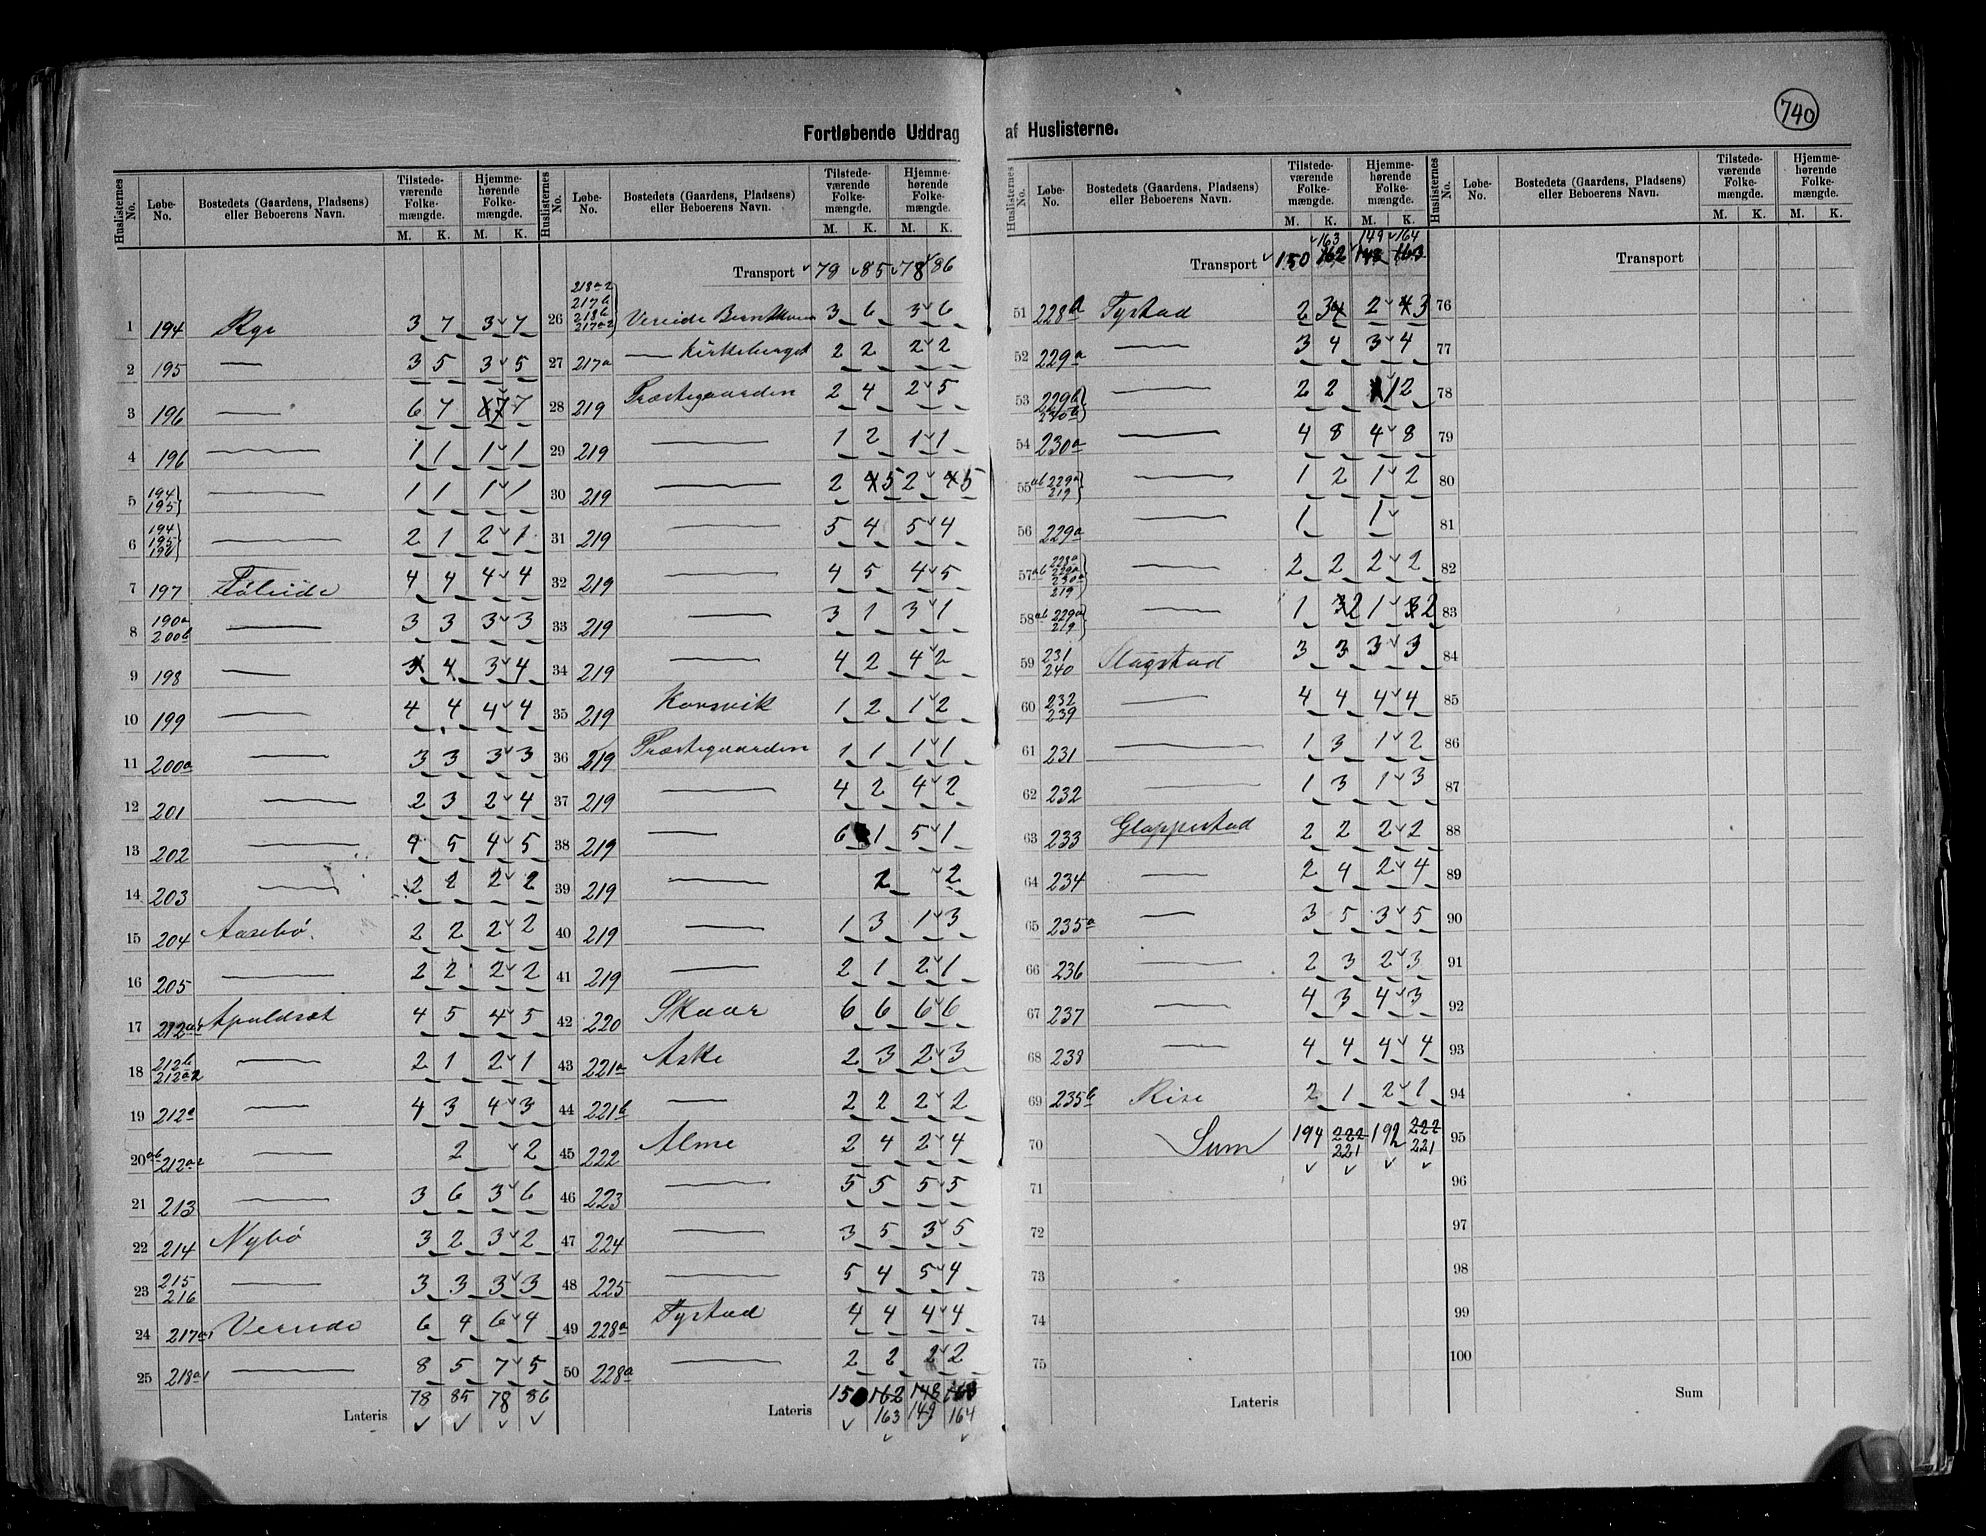 740
Fortløbende Uddrag af Huslisterne.
Huslisternes No. | Løbe-No. | Bostedets (Gaardens, Pladsens) eller Beboerens Navn. | Tilstedeværende Folkemængde. M. K. | Hjemmehørende Folkemængde. M. K.
1 194 Ryg 3 7 3 7
2 195 — 3 5 3 5
3 196 — 6 7 7 7
4 196 — 1 1 1 1
5 194 195 — 1 1 1 1
6 194 195 196 — 2 1 2 1
7 197 Føleide 4 4 4 4
8 190a 200b — 3 3 3 3
9 198 — 3 4 3 4
10 199 — 4 4 4 4
11 200a — 3 3 3 3
12 201 — 2 3 2 4
13 202 — 4 5 4 5
14 203 — 2 2 2 2
15 204 Aasebø. 2 2 2 2
16 205 — 2 2 2 2
17 212a1 Apaldset 4 5 4 5
18 212b 212a2 — 2 1 2 1
19 212a — 4 3 4 3
20 ab 212a2 — 2 2
21 213 — 3 6 3 6
22 214 Nybø 3 2 3 2
23 215 216 — 3 3 3 3
24 217a1 Vereide 6 4 6 4
25 218a1 — 8 5 7 5
Lateris 78 85 78 86
Huslisternes No. | Løbe-No. | Bostedets (Gaardens, Pladsens) eller Beboerens Navn. | Tilstedeværende Folkemængde. M. K. | Hjemmehørende Folkemængde. M. K.
Transport 78 85 78 86
26 218a2 217b 218b 217a2 Vereide 3 6 3 6
27 217a — Kirkeberget 2 2 2 2
28 219 Præstegaarden 2 4 2 5
29 219 — 1 2 1 1
30 219 — 2 4 5 2 4 5
31 219 — 5 4 5 4
32 219 — 4 5 4 5
33 219 — 3 1 3 1
34 219 — 4 2 4 2
35 219 Korsvik 1 2 1 2
36 219 Præstegaarden 1 1 1 1
37 219 — 4 2 4 2
38 219 — 6 1 5 1
39 219 — 2 2
40 219 — 1 3 1 3
41 219 — 2 1 2 1
42 220 Skaar 6 6 6 6
43 221a Aske 2 3 2 3
44 221b — 2 2 2 2
45 222 Alme 2 4 2 4
46 223 — 5 5 5 5
47 224 — 3 5 3 5
48 225 — 5 4 5 4
49 228a Tystad 4 4 4 4
50 228a — 2 2 2 2
Lateris 150 162 148 163
163 149 164
Huslisternes No. | Løbe-No. | Bostedets (Gaardens, Pladsens) eller Beboerens Navn. | Tilstedeværende Folkemængde. M. K. | Hjemmehørende Folkemængde. M. K.
163 149 164
Transport 150 162 148 163
51 228b Tystad 2 3 4 2 4 3
52 229a — 3 4 3 4
53 229b 230b — 2 2 1 2
54 230a — 4 8 4 8
55 ab 229a 219 — 1 2 1 2
56 229a — 1 1
57 ab 228a 229a 230a 219 — 2 2 2 2
58 ab 229a 219 — 1 3 2 1 3 2
59 231 240 Slagstad 3 3 3 3
60 232 239 — 4 4 4 4
61 231 — 1 3 1 2
62 232 — 1 3 1 3
63 233 Gloppestad 2 2 2 2
64 234 — 2 4 2 4
65 235a — 3 5 3 5
66 236 — 2 3 2 3
67 237 — 4 3 4 3
68 238 — 4 4 4 4
69 235b Rise 2 1 2 1
70 Sum 194 222 192 222
221 221
71
72
73
74
75
Lateris
Huslisternes No. | Løbe-No. | Bostedets (Gaardens, Pladsens) eller Beboerens Navn. | Tilstedeværende Folkemængde. M. K. | Hjemmehørende Folkemængde. M. K.
Transport
76
77
78
79
80
81
82
83
84
85
86
87
88
89
90
91
92
93
94
95
96
97
98
99
100
Sum